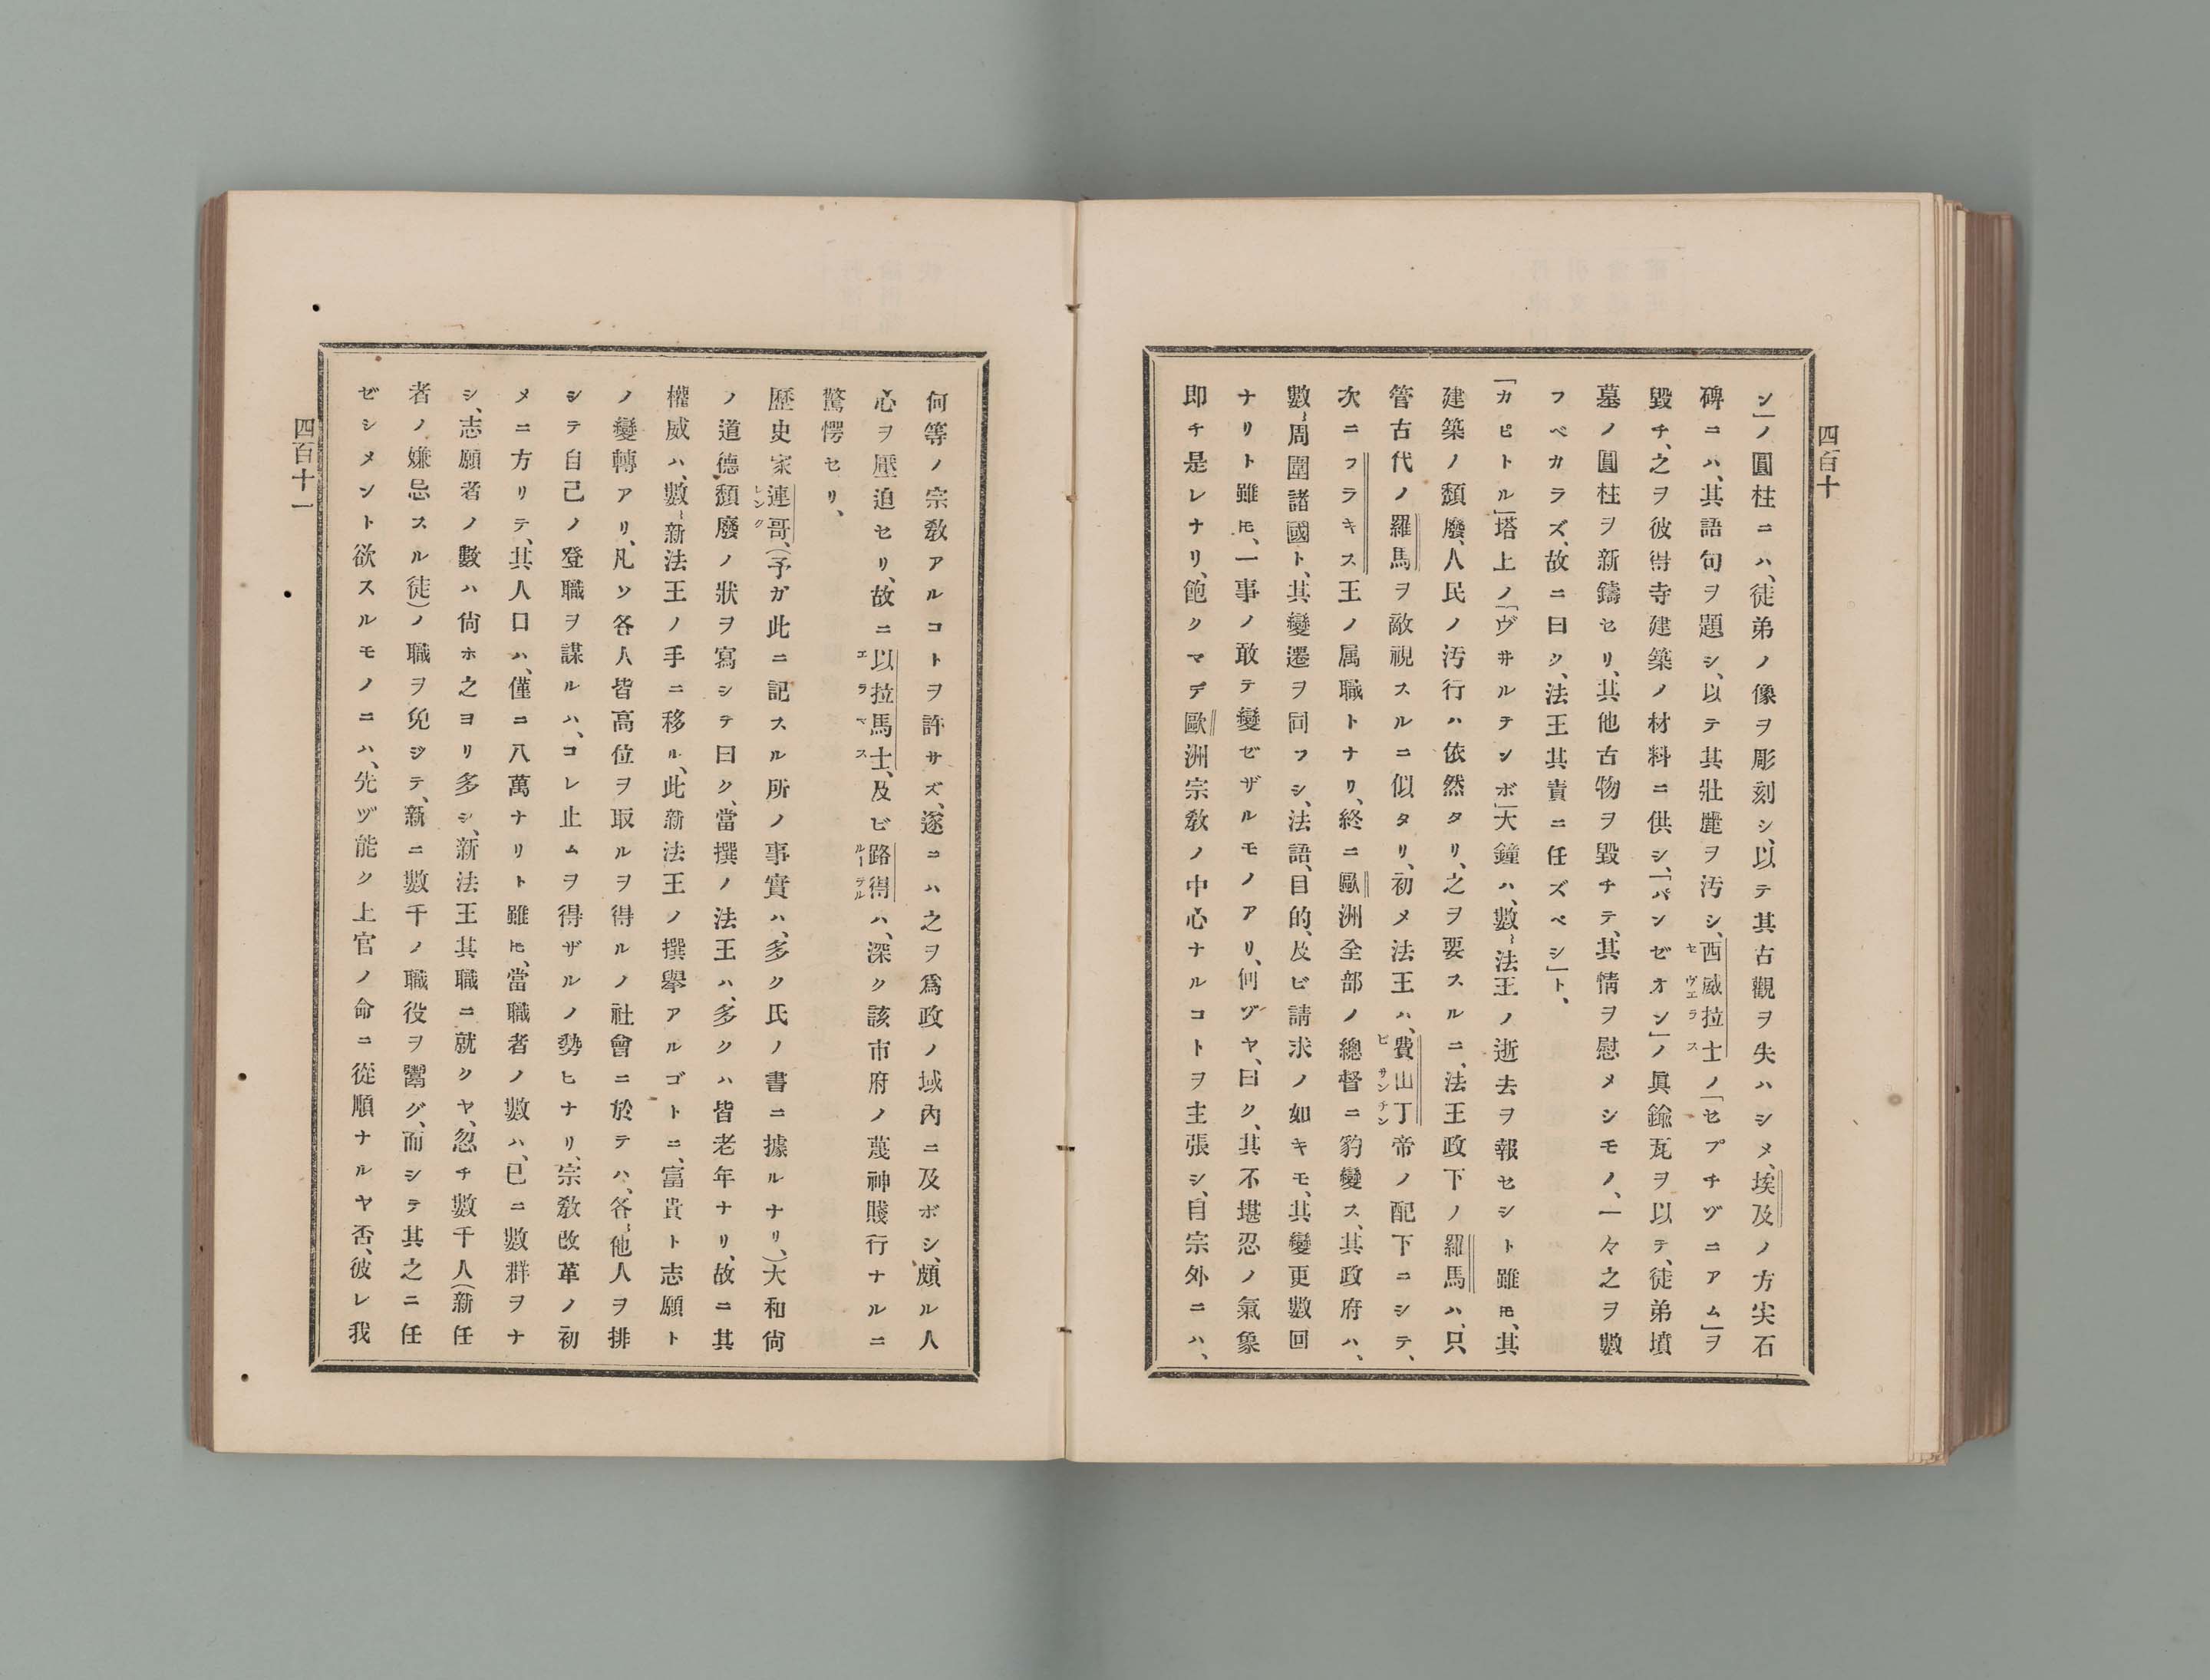 四百十
ン」ノ圓柱ニハ、徒弟ノ像ヲ彫刻シ、以テ其古觀ヲ失ハシメ、埃及ノ方尖石
碑ニハ、其語句ヲ題シ、以テ其壯麗ヲ汚シ、西威拉士ノ「セプチヅニアム」ヲ
セヴエラス
毀チ、之ヲ彼得寺建築ノ材料ニ供シ、「パンゼオン」ノ眞鍮瓦ヲ以テ、徒弟墳
墓ノ圓柱ヲ新鑄セリ、其他古物ヲ毀チテ、其情ヲ慰メシモノ、一々之ヲ數
フベカラズ、故ニ曰ク、法王其責ニ任ズベシ」ト、
「カピトル」塔上ノ「ヴヰルテンボ」大鐘ハ、數〻法王ノ逝去ヲ報セシト雖𪜈、其
建築ノ頽廢、人民ノ汚行ハ依然タリ、之ヲ要スルニ、法王政下ノ羅馬ハ、只
管古代ノ羅馬ヲ敵視スルニ似タリ、初メ法王ハ、費山丁帝ノ配下ニシテ、
ビサンチン
次ニフラキス王ノ属職トナリ、終ニ歐洲全部ノ總督ニ豹變ス、其政府ハ、
數〻周圍諸國ト、其變遷ヲ同フシ、法語、目的、及ビ請求ノ如キモ、其變更數回
ナリト雖𪜈、一事ノ敢テ變ゼザルモノアリ、何ヅヤ、曰ク、其不堪忍ノ氣象
即チ是レナリ、飽クマデ歐洲宗敎ノ中心ナルコトヲ主張シ、自宗外ニハ、
何等ノ宗敎アルコトヲ許サズ、遂ニハ之ヲ爲政ノ域內ニ及ボシ、頗ル人
心ヲ壓迫セリ、故ニ以拉馬士、及ビ路得ハ、深ク該市府ノ蔑神賤行ナルニ
エラマス
ルーテル
驚愕セリ、
歷史家連哥、(予ガ此ニ記スル所ノ事實ハ、多ク氏ノ書ニ據ルナリ、)大和尙
レンク
ノ道德頽廢ノ狀ヲ寫シテ曰ク、當撰ノ法王ハ、多クハ皆老年ナリ、故ニ其
權威ハ、數〻新法王ノ手ニ移ル、此新法王ノ撰擧アルゴトニ、富貴ト志願ト
ノ變轉アリ、凡ソ各人皆高位ヲ取ルヲ得ルノ社會ニ於テハ、各〻他人ヲ排
シテ自己ノ登職ヲ謀ルハ、コレ止ムヲ得ザルノ勢ヒナリ、宗敎改革ノ初
メニ方リテ、其人口ハ、僅ニ八萬ナリト雖𪜈、當職者ノ數ハ、已ニ數群ヲナ
シ、志願者ノ數ハ尙ホ之ヨリ多シ、新法王其職ニ就クヤ、忽チ數千人(新任
者ノ嫌忌スル徒)ノ職ヲ免ジテ、新ニ數千ノ職役ヲ鬻グ、而シテ其之ニ任
ゼシメント欲スルモノニハ、先ヅ能ク上官ノ命ニ從順ナルヤ否、彼レ我
四百十一